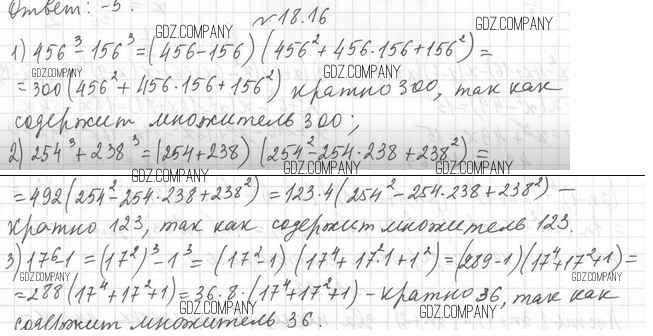 Ответ: -5.
№18.16
GDZ.COMPANY GDZ.COMPANY
1) 456³-156³=(456-156)(456²+456·156+156²)=
GDZ.COMPANY GDZ.COMPANY
=300(456²+456·156+156²) кратно 300, так как
содержит множитель 300;
2) 254³+238³=(254+238)(254²-254·238+238²)=
GDZ.COMPANY GDZ.COMPANY GDZ.COMPANY
=492(254²-254·238+238²)=123·4(254²-254·238+238²)-
кратно 123, так как содержит множитель 123.
3) 17⁶-1=(17²)³-1³=(17²-1)(17⁴+17²·1+1²)=(289-1)(17⁴+17²+1)=
GDZ.COMPANY GDZ.COMPANY
=288(17⁴+17²+1)=36·8·(17⁴+17²+1)-кратно 36, так как
GDZ.COMPANY GDZ.COMPANY
содержит множитель 36.